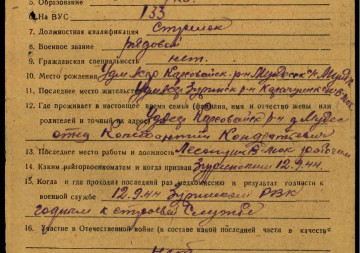 5. Образование
6. На ВУС 133
7. Должностная квалификация Стрелок
8. Военное звание рядовой
9. Гражданская специальность нет.
10. Место рождения Удм АССР Карсовайск. р-н
11. Последнее место жительства Зуринск р-н
12. Где проживает в настоящее время семья (фамилия, имя и отчество жены или
родителей и точный их адрес) Карсовайск р-н
отец Константин Кондратьевич
13. Последнее место работы и должность рабочий
14. Каким райгорвоенкоматом и когда призван Зуринским 12.9.44
15. Когда и где проходил последний раз медкомиссию и результат годности к
военной службе 12.9.44 Зуринский РВК
годным к строевой службе
16. Участие в Отечественной войне (в составе какой последней части в качестве